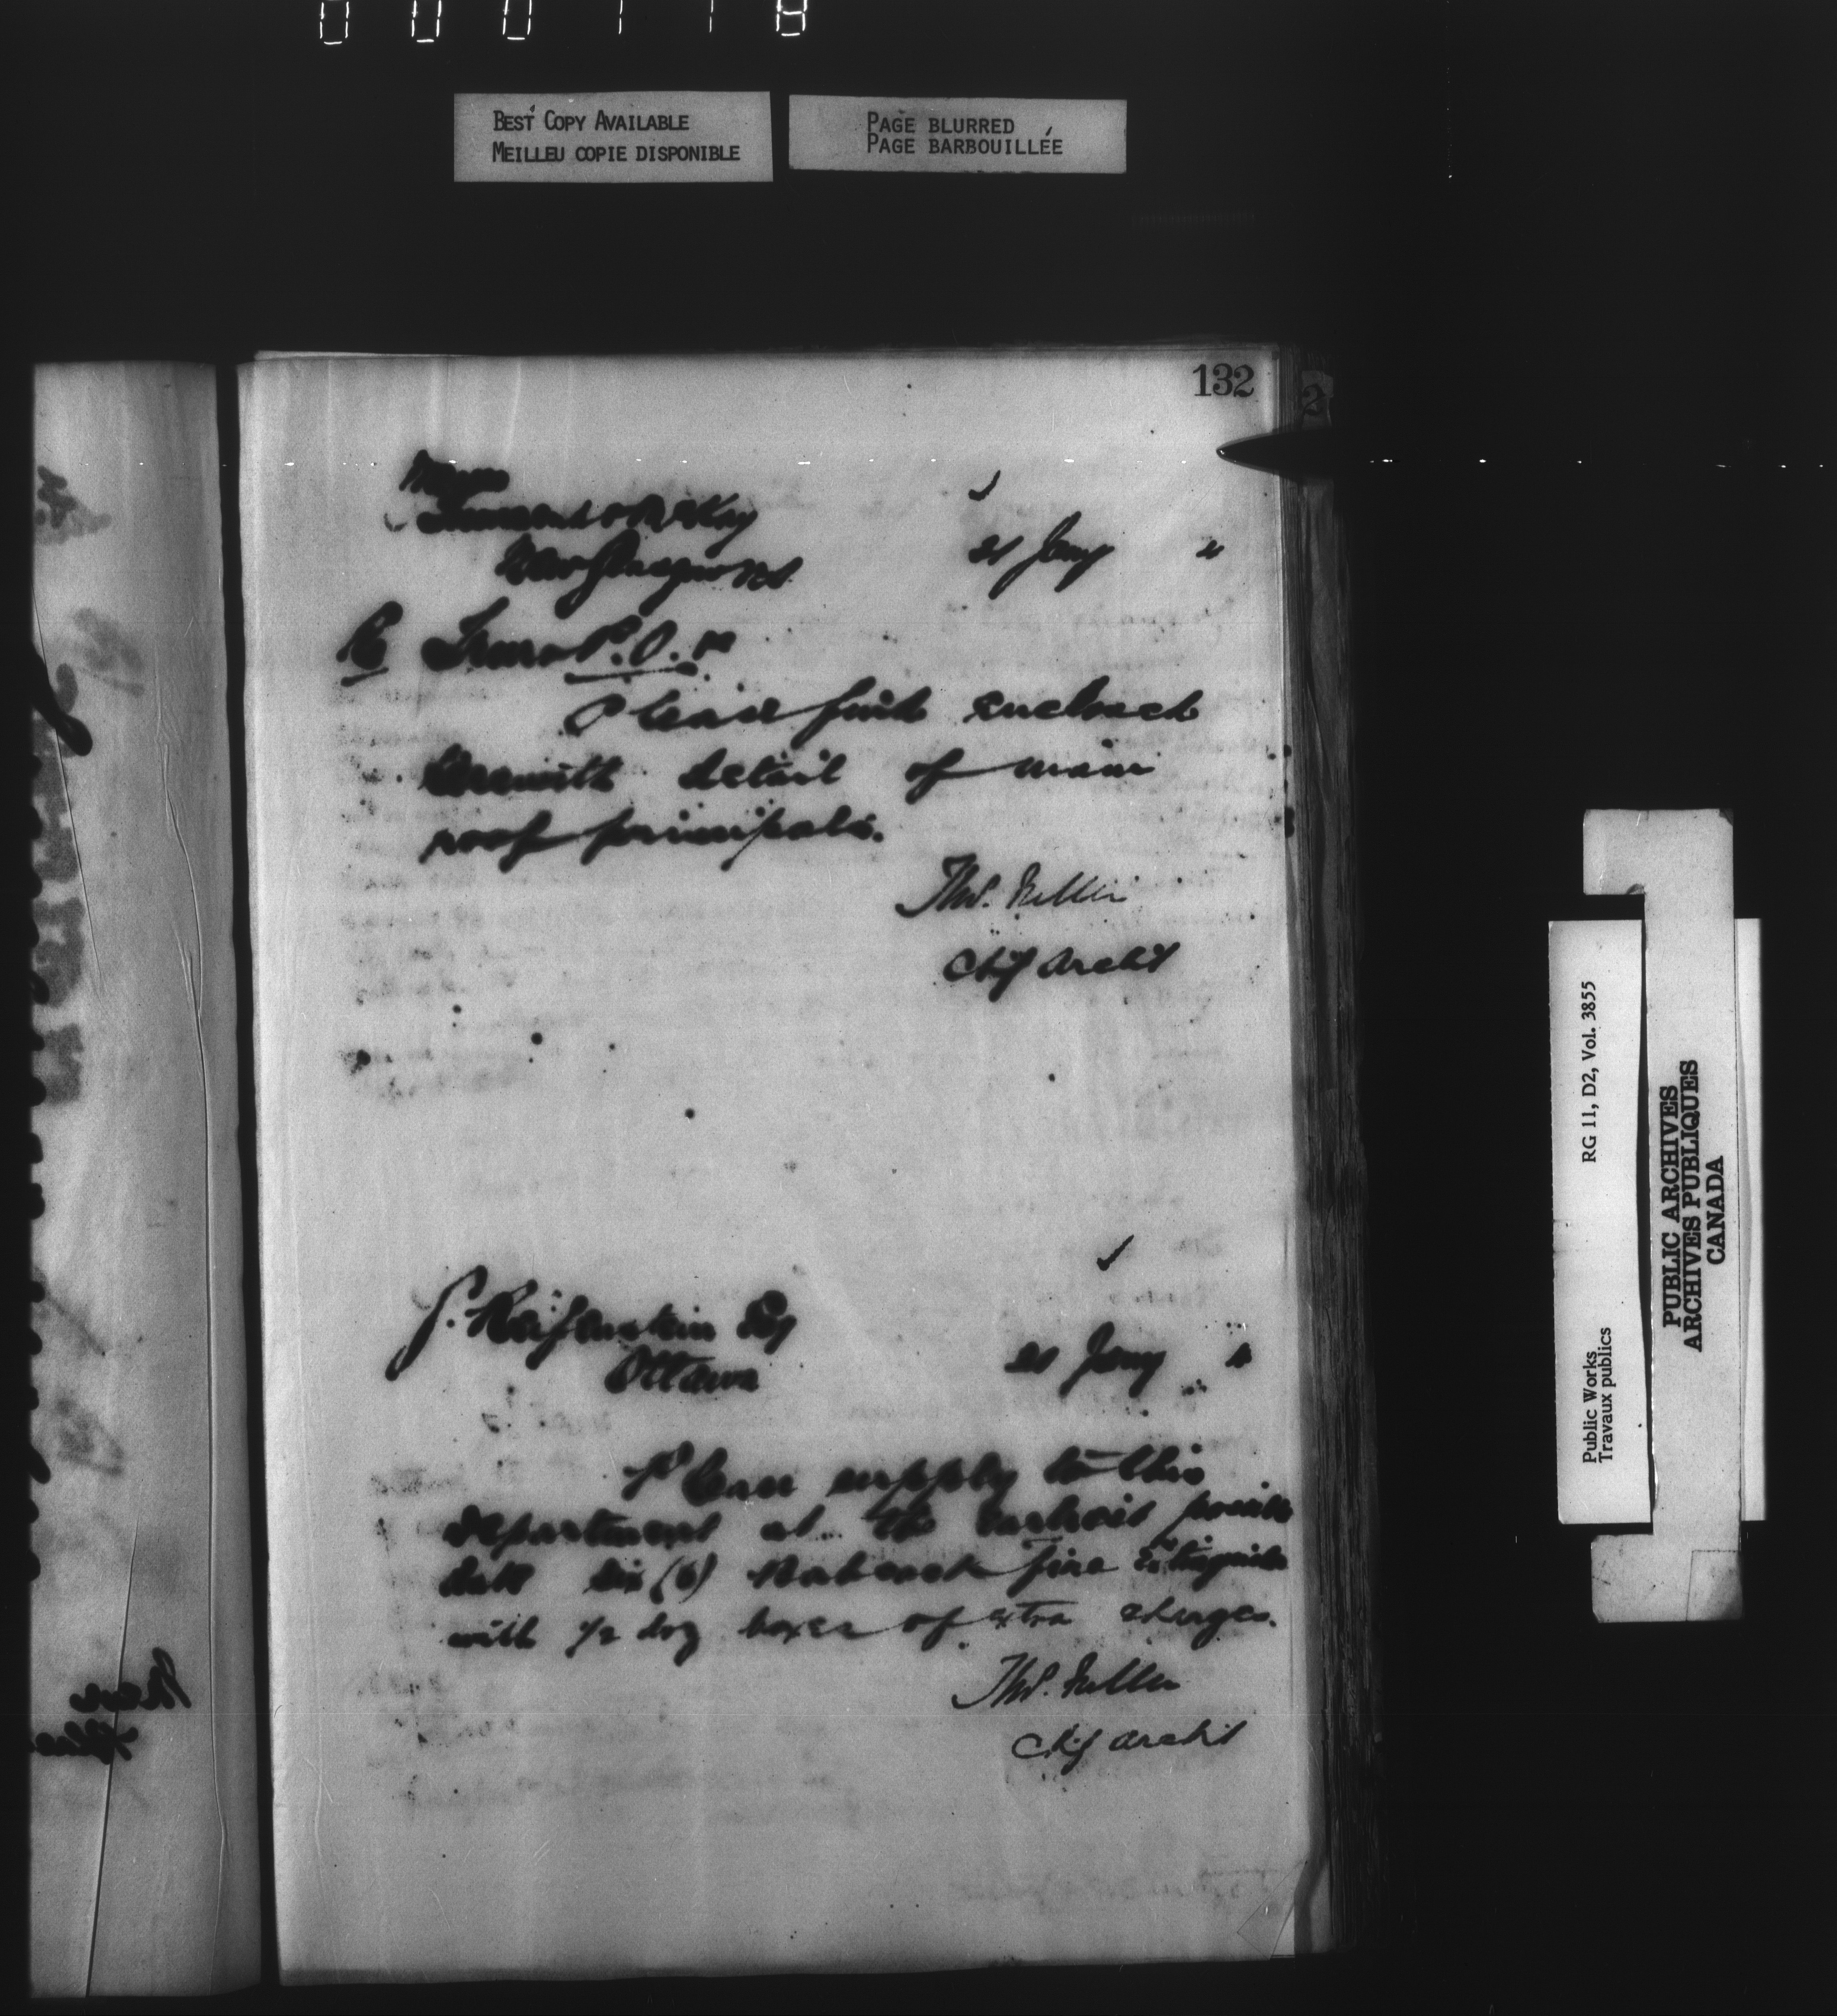 000118
BEST COPY AVAILABLE
MEILLEU COPIE DISPONIBLE
PAGE BLURRED
PAGE BARBOUILLÉE
132
Messrs
& McKay
New Glasgow NS.
21 Jany "
Re Truro P.O. &c
Please find enclosed
herewith detail of main
roof principals.
Thos. Fuller
Chf Archt
J. Reiffenstein Esq
Ottawa
21 Jany "
Please supply to this
Department at the earliest possible
date six (6) Babcock fire Extinguishers
with 1/2 doz boxes of extra charges.
Thos. Fuller
Chf Archt
RG 11, D2, Vol. 3855
Public Works
Travaux publics
PUBLIC ARCHIVES
ARCHIVES PUBLIQUES
CANADA